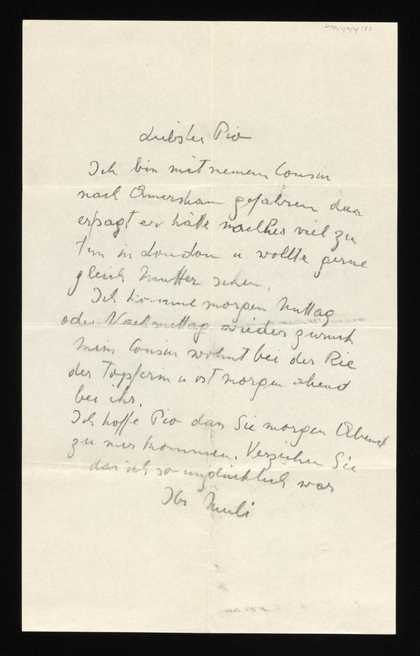 Liebster Pio
Ich bin mit meinem Cousin
nach Amersham gefahren da
er sagt er hätte viel zu
tun in London u wollte gerne
gleich Mutter sehen.
Ich komme morgen Mittag
oder Nachmittag wieder zurück
Mein Cousin wohnt bei der Rie
der Töpferin u ist morgen abend
bei ihr.
Ich hoffe Pio das Sie morgen Abend
zu mir kommen. Verzeihen Sie
das ich so unglücklich war
Ihr